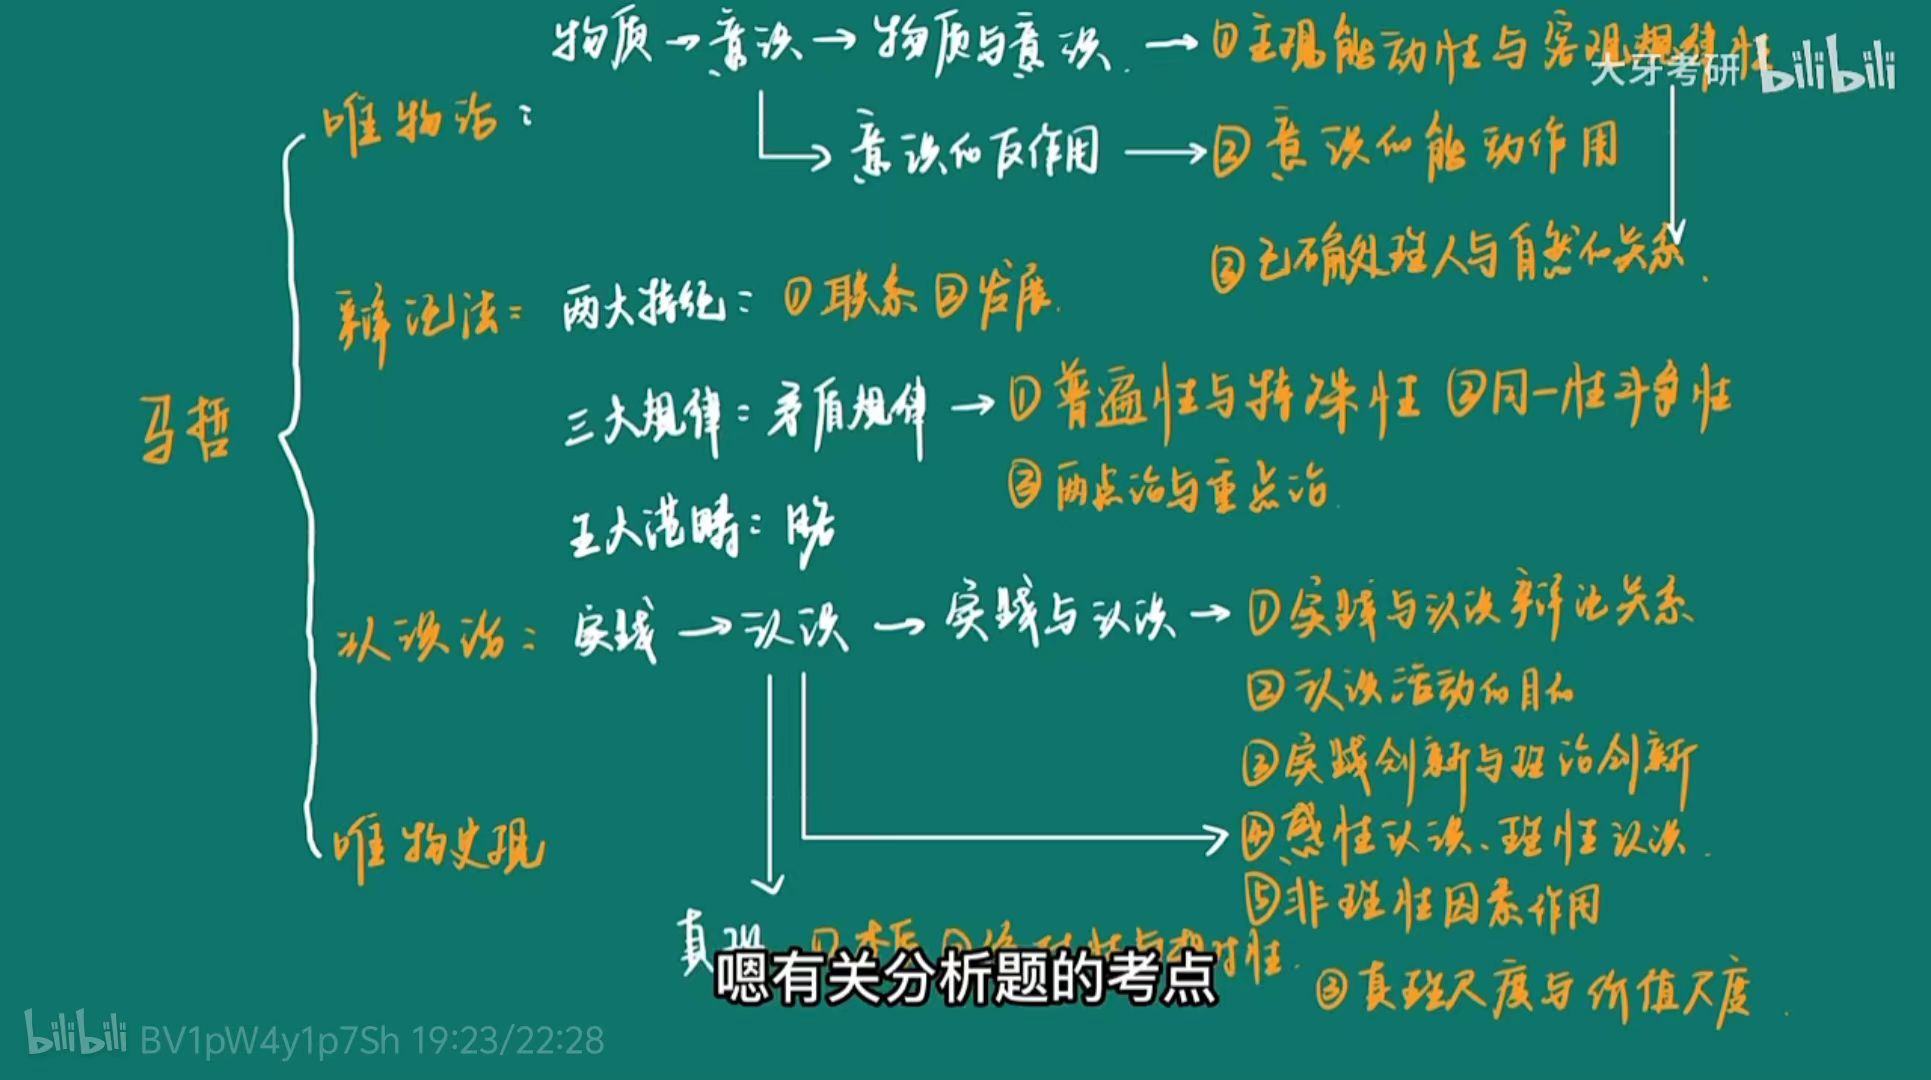 物质→意识→物质与意识.→①主观能动性与客观规律性
大牙考研 bilibili
唯物论:
意识的反作用→②意识的能动作用
③正确处理人与自然的关系.
辩证法: 两大特征: ①联系②发展.
马哲
三大规律: 矛盾规律→①普遍性与特殊性 ②同一性斗争性
③两点论与重点论.
五大范畴: 略
认识论: 实践→认识→实践与认识→①实践与认识辩证关系
②认识活动的目的
③实践创新与理论创新
④感性认识、理性认识.
唯物史观
⑤非理性因素作用
真理 ① ②绝对性与相对性.
嗯有关分析题的考点
③真理尺度与价值尺度.
bilibili BV1pW4y1p7Sh 19:23/22:28